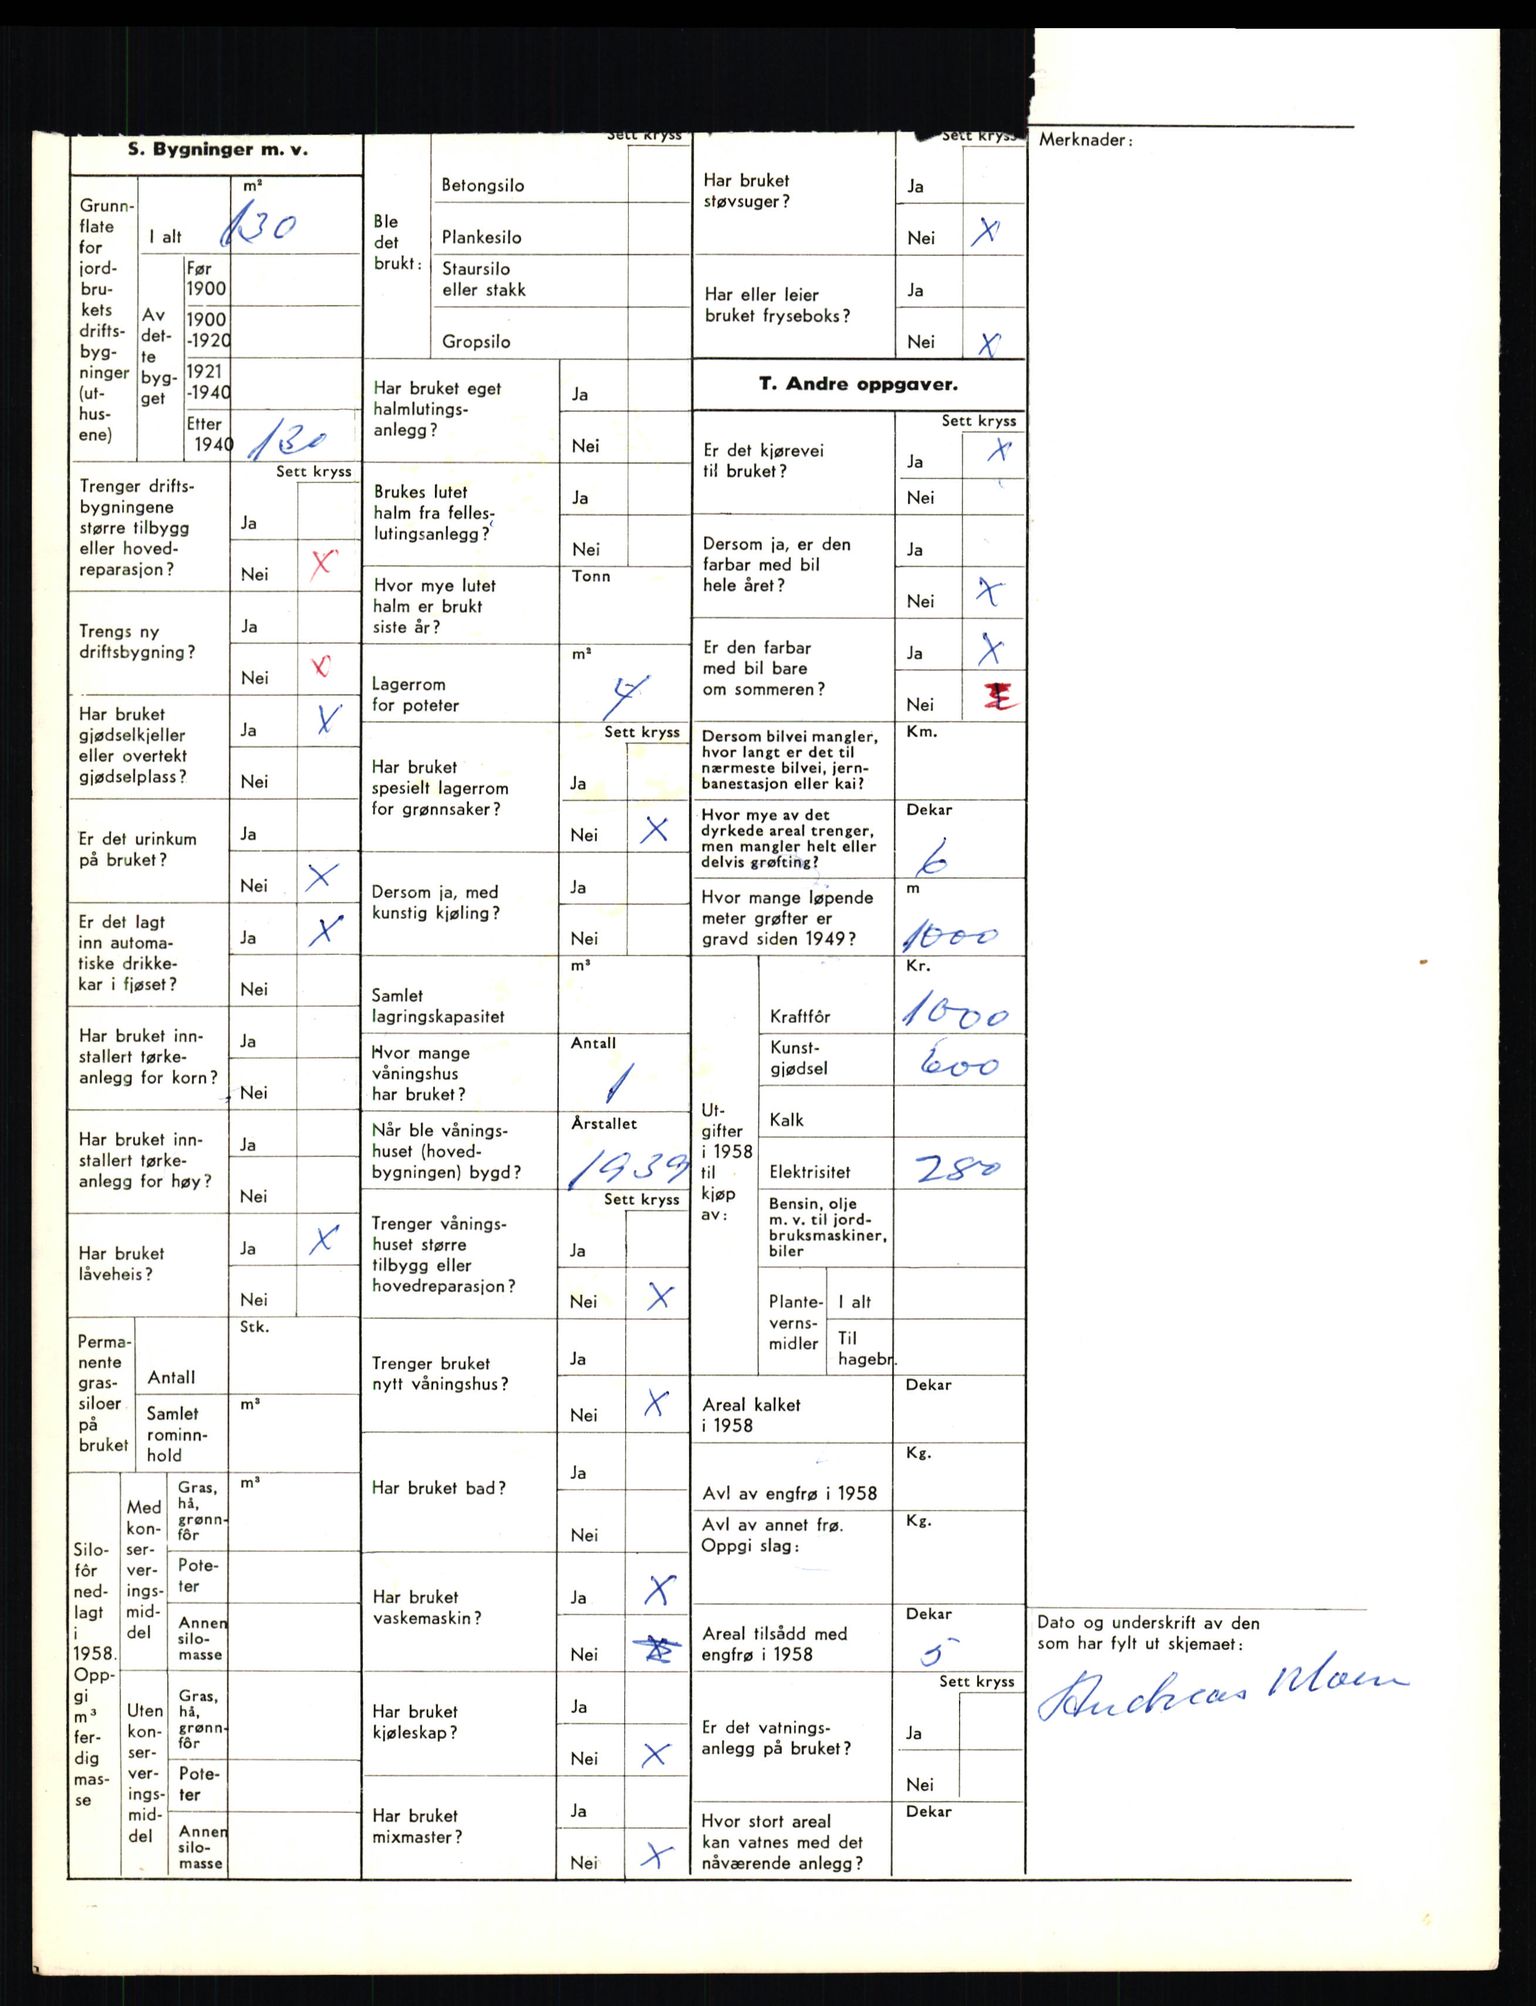 S. Bygninger m. v.
Grunn-
flate
for
jord-
bru-
kets
drifts-
byg-
ninger
(ut-
hus-
ene)
I alt
m²
130
Av
det-
te
byg-
get
Før
1900
1900
-1920
1921
-1940
Etter
1940
130
Sett kryss
Trenger drifts-
bygningene
større tilbygg
eller hoved-
reparasjon?
Ja
Nei X
Trengs ny
driftsbygning?
Ja
Nei X
Har bruket
gjødselkjeller
eller overtekt
gjødselplass?
Ja X
Nei
Er det urinkum
på bruket?
Ja
Nei X
Er det lagt
inn automa-
tiske drikke-
kar i fjøset?
Ja X
Nei
Har bruket inn-
stallert tørke-
anlegg for korn?
Ja
Nei
Har bruket inn-
stallert tørke-
anlegg for høy?
Ja
Nei
Har bruket
låveheis?
Ja X
Nei
Perma-
nente
gras-
siloer
på
bruket
Stk.
Antall
Samlet
rominn-
hold
m³
Silo-
fôr
ned-
lagt
i
1958.
Opp-
gi
m³
fer-
dig
mas-
se
Med
kon-
ser-
ver-
ings-
mid-
del
Gras,
hå,
grønn-
fôr
m³
Pote-
ter
Annen
silo-
masse
Uten
kon-
ser-
ver-
ings-
mid-
del
Gras,
hå,
grønn-
fôr
Pote-
ter
Annen
silo-
masse
Sett kryss
Ble
det
brukt:
Betongsilo
Plankesilo
Staursilo
eller stakk
Gropsilo
Har bruket eget
halmlutings-
anlegg?
Ja
Nei
Brukes lutet
halm fra felles-
lutingsanlegg?
Ja
Nei
Hvor mye lutet
halm er brukt
siste år?
Tonn
Lagerrom
for poteter
m²
4
Sett kryss
Har bruket
spesielt lagerrom
for grønnsaker?
Ja
Nei X
Dersom ja, med
kunstig kjøling?
Ja
Nei
Samlet
lagringskapasitet
m³
Hvor mange
våningshus
har bruket?
Antall
1
Når ble vånings-
huset (hoved-
bygningen) bygd?
Årstallet
1939
Sett kryss
Trenger vånings-
huset større
tilbygg eller
hovedreparasjon?
Ja
Nei X
Trenger bruket
nytt våningshus?
Ja
Nei X
Har bruket bad?
Ja
Nei
Har bruket
vaskemaskin?
Ja X
Nei X
Har bruket
kjøleskap?
Ja
Nei X
Har bruket
mixmaster?
Ja
Nei X
Sett kryss
Har bruket
støvsuger?
Ja
Nei X
Har eller leier
bruket fryseboks?
Ja
Nei X
T. Andre oppgaver.
Sett kryss
Er det kjørevei
til bruket?
Ja X
Nei
Dersom ja, er den
farbar med bil
hele året?
Ja
Nei X
Er den farbar
med bil bare
om sommeren?
Ja X
Nei X
Dersom bilvei mangler,
hvor langt er det til
nærmeste bilvei, jern-
banestasjon eller kai?
Km.
Hvor mye av det
dyrkede areal trenger,
men mangler helt eller
delvis grøfting?
Dekar
6
Hvor mange løpende
meter grøfter er
gravd siden 1949?
m
1000
Ut-
gifter
i 1958
til
kjøp
av:
Kr.
Kraftfôr 1000
Kunst-
gjødsel 600
Kalk
Elektrisitet 280
Bensin, olje
m. v. til jord-
bruksmaskiner,
biler
Plante-
verns-
midler
I alt
Til
hagebr.
Areal kalket
i 1958
Dekar
Avl av engfrø i 1958
Kg.
Avl av annet frø.
Oppgi slag:
Kg.
Areal tilsådd med
engfrø i 1958
Dekar
5
Sett kryss
Er det vatnings-
anlegg på bruket?
Ja
Nei
Hvor stort areal
kan vatnes med det
nåværende anlegg?
Dekar
Merknader:
Dato og underskrift av den
som har fylt ut skjemaet:
Andreas Moen